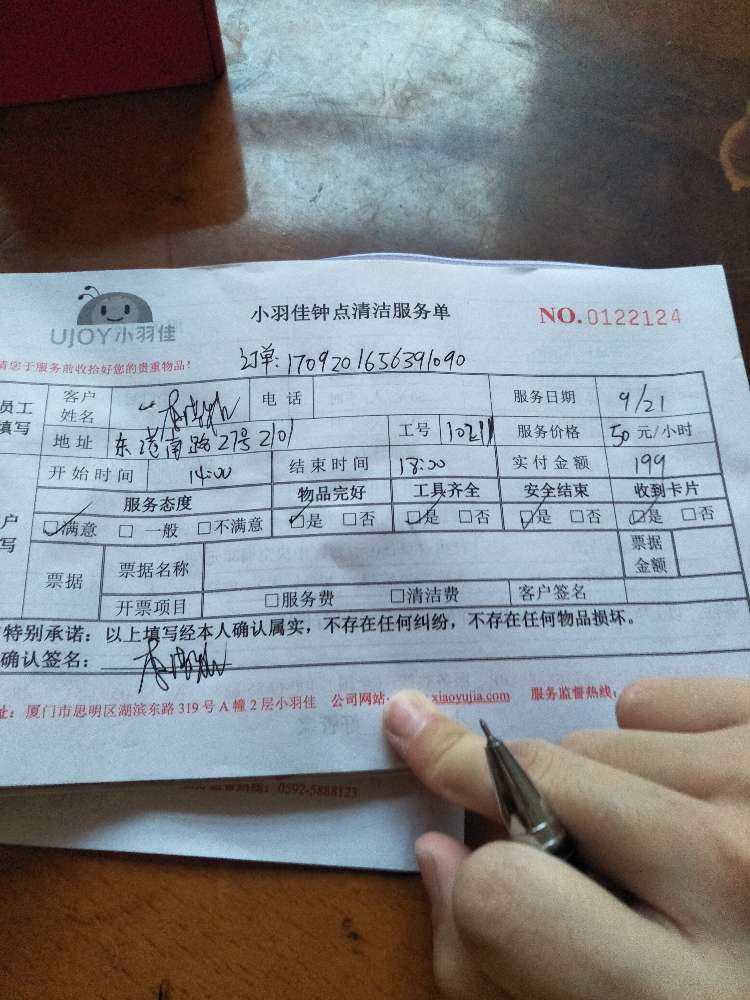 UJOY小羽佳
小羽佳钟点清洁服务单
NO.0122124
请您于服务前收拾好您的贵重物品!
订单:1709201656391090
员工填写 客户姓名 电话 服务日期 9/21
地址 东港南路27号2101 工号 10211 服务价格 50元/小时
开始时间 14:00 结束时间 18:00 实付金额 199
服务态度 物品完好 工具齐全 安全结束 收到卡片
户写 ☑满意 □一般 □不满意 ☑是 □否 ☑是 □否 ☑是 □否 ☑是 □否
票据 票据名称 票据金额
开票项目 □服务费 □清洁费 客户签名
特别承诺:以上填写经本人确认属实,不存在任何纠纷,不存在任何物品损坏。
确认签名:
址:厦门市思明区湖滨东路319号A幢2层小羽佳 公司网站: xiaoyujia.com 服务监督热线:
0592-5888123